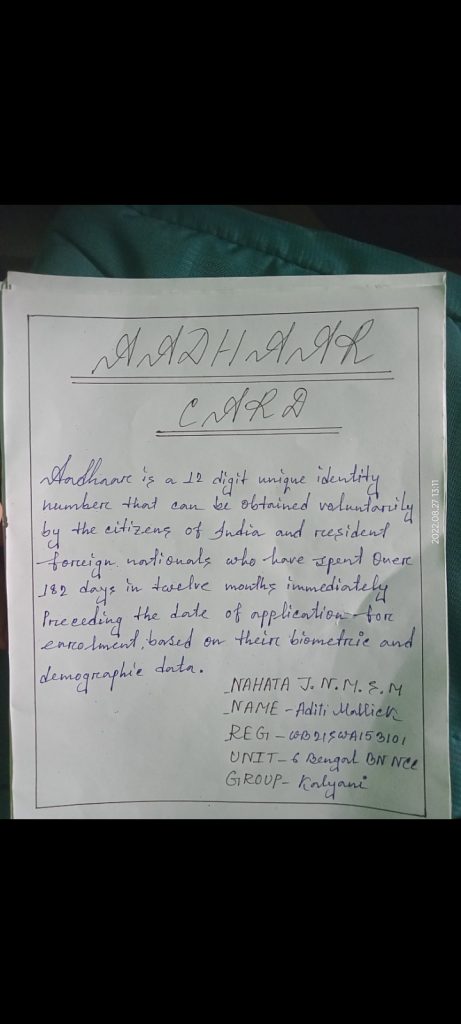 AADHAAR
CARD
Aadhaarc is a 12 digit unique identity
numberc that can be obtained voluntarily
by the citizens of India and rcesident
forceign nationals who have spent Overc
182 days in twelve months immediately
Prceceding the date of application forc
enrcolment, based on theirc biometrcic and
demographic data.
NAHATA J. N. M. S. M
NAME - Aditi Mallick
REGI - WB21SWA153101
UNIT - 6 Bengal BN NCC
GROUP - Kalyani
2022.08.27 13:11